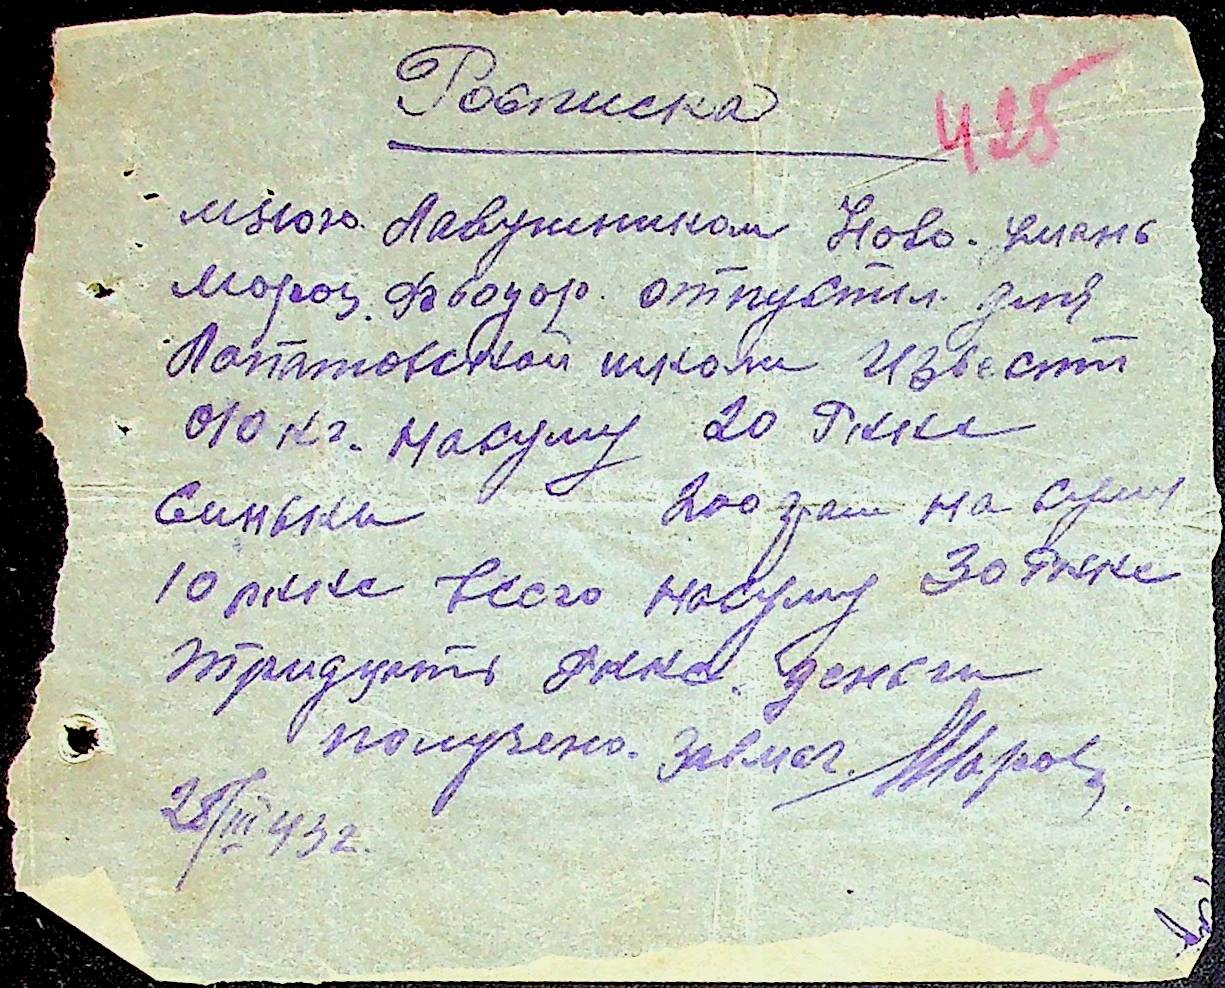 Росписка
425
мною Лавушником Ново. умань
Мороз. Фводор. отпустил для
Лопатовской школи Извести
010 кг. насуму 20 Ркке
Синьки 200 грам на суму
10 ркке Всего насуму 30 Ркке
тридцять Ркке. деньги
получено. завмаг. Мороз.
28/III 43 г.